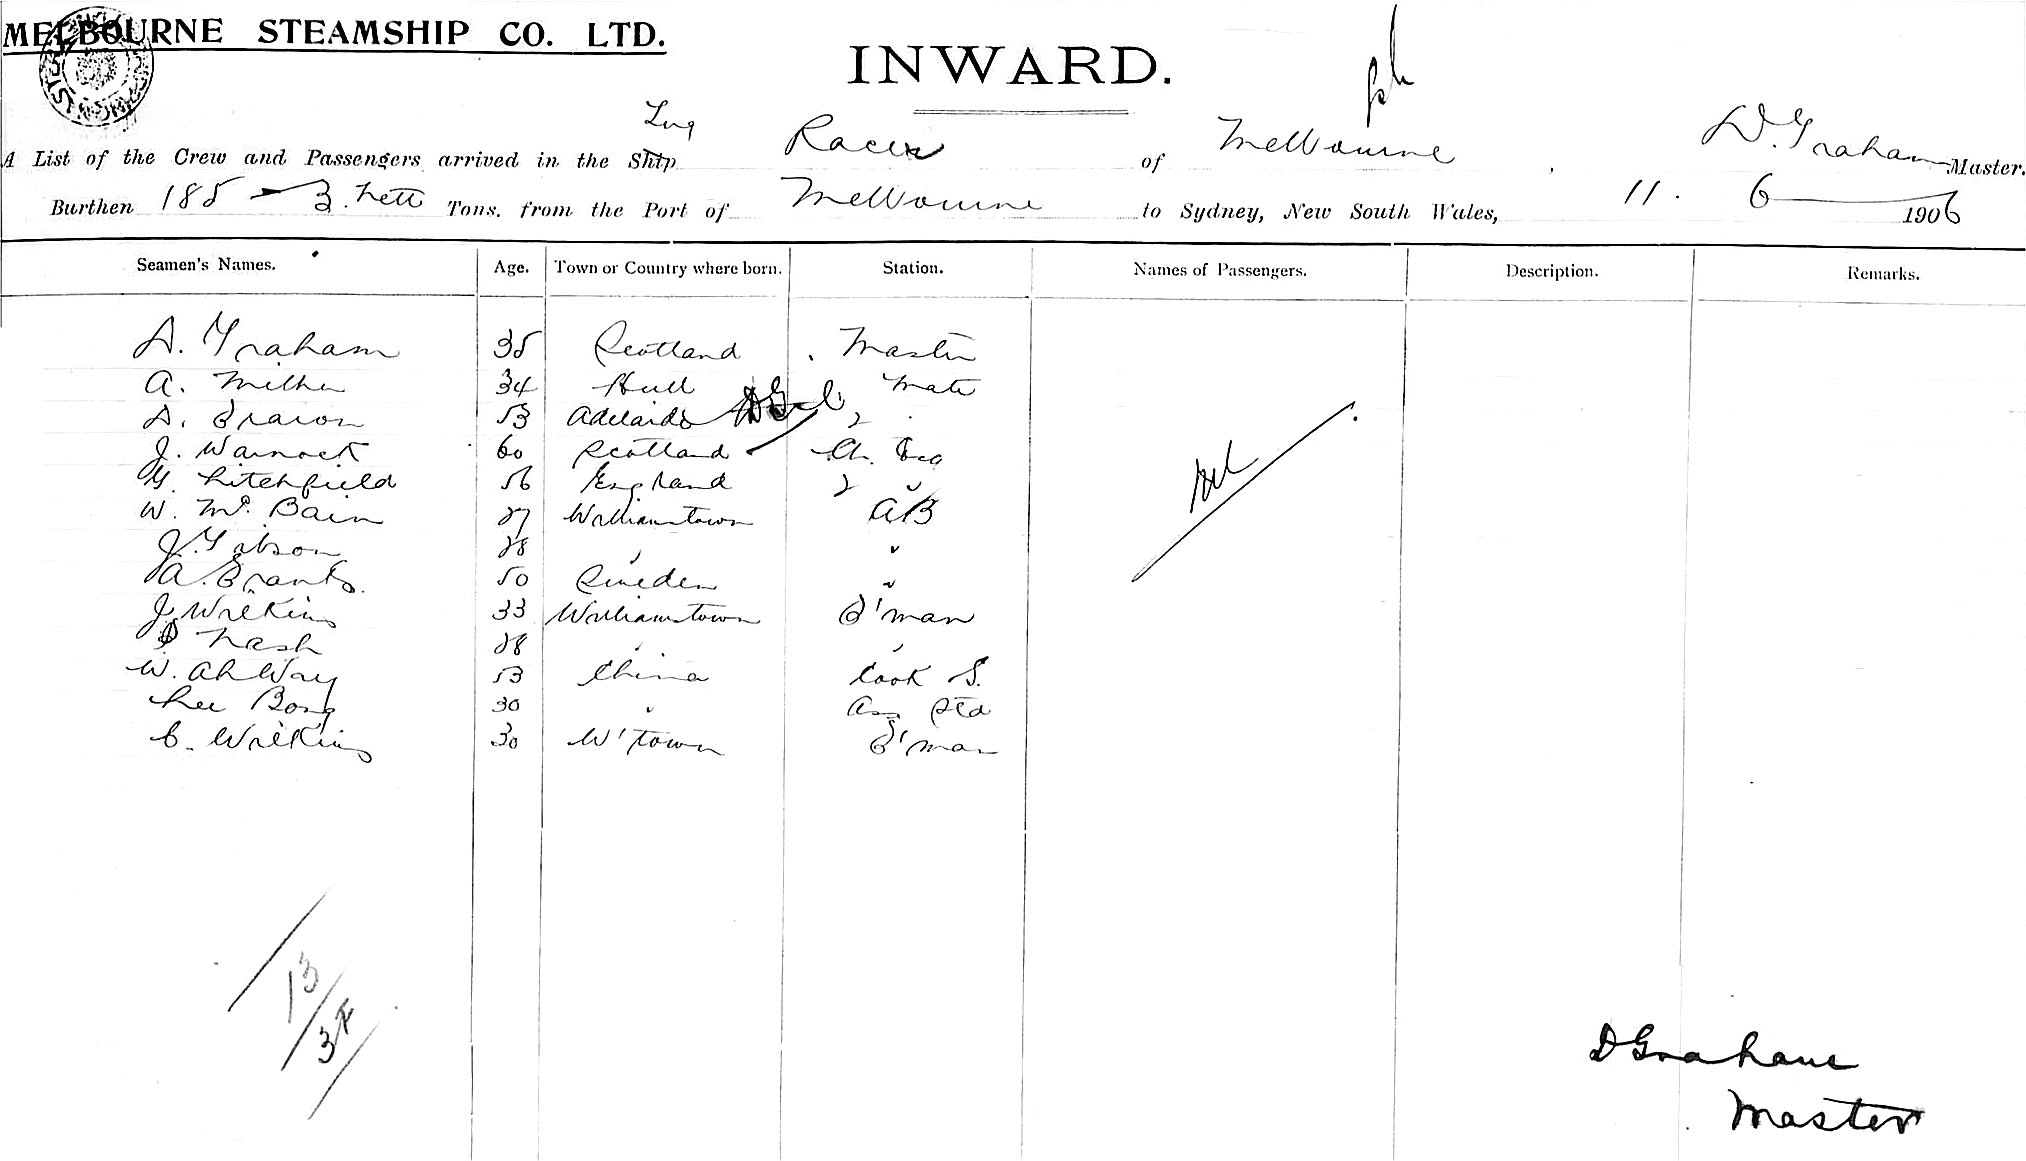 MELBOURNE STEAMSHIP CO. LTD.
INWARD.
Tug
A List of the Crew and Passengers arrived in the Ship Racer of Melbourne, D. Graham Master.
Burthen 185 - 3 nett Tons, from the Port of Melbourne to Sydney, New South Wales, 11. 6 1906
Seamen's Names. Age. Town or Country where born. Station. Names of Passengers. Description. Remarks.
D. Graham 35 Scotland Master
A. Milne 34 Hull Mate
D. Brown 53 Adelaide 2
J. Warnock 60 Scotland Ch. Eng
G. Litchfield 56 England 2 "
W. McBain 27 Williamstown AB
J. Gibson 28 " "
A. Brants 50 Sweden "
J. Wilkins 33 Williamstown F'man
Nash 28 " "
W. Ah Way 53 China Cook S.
Lee Bong 30 " Ass Std
C. Wilkins 30 W'town F'man
Nil
13
3F
D Graham
Master